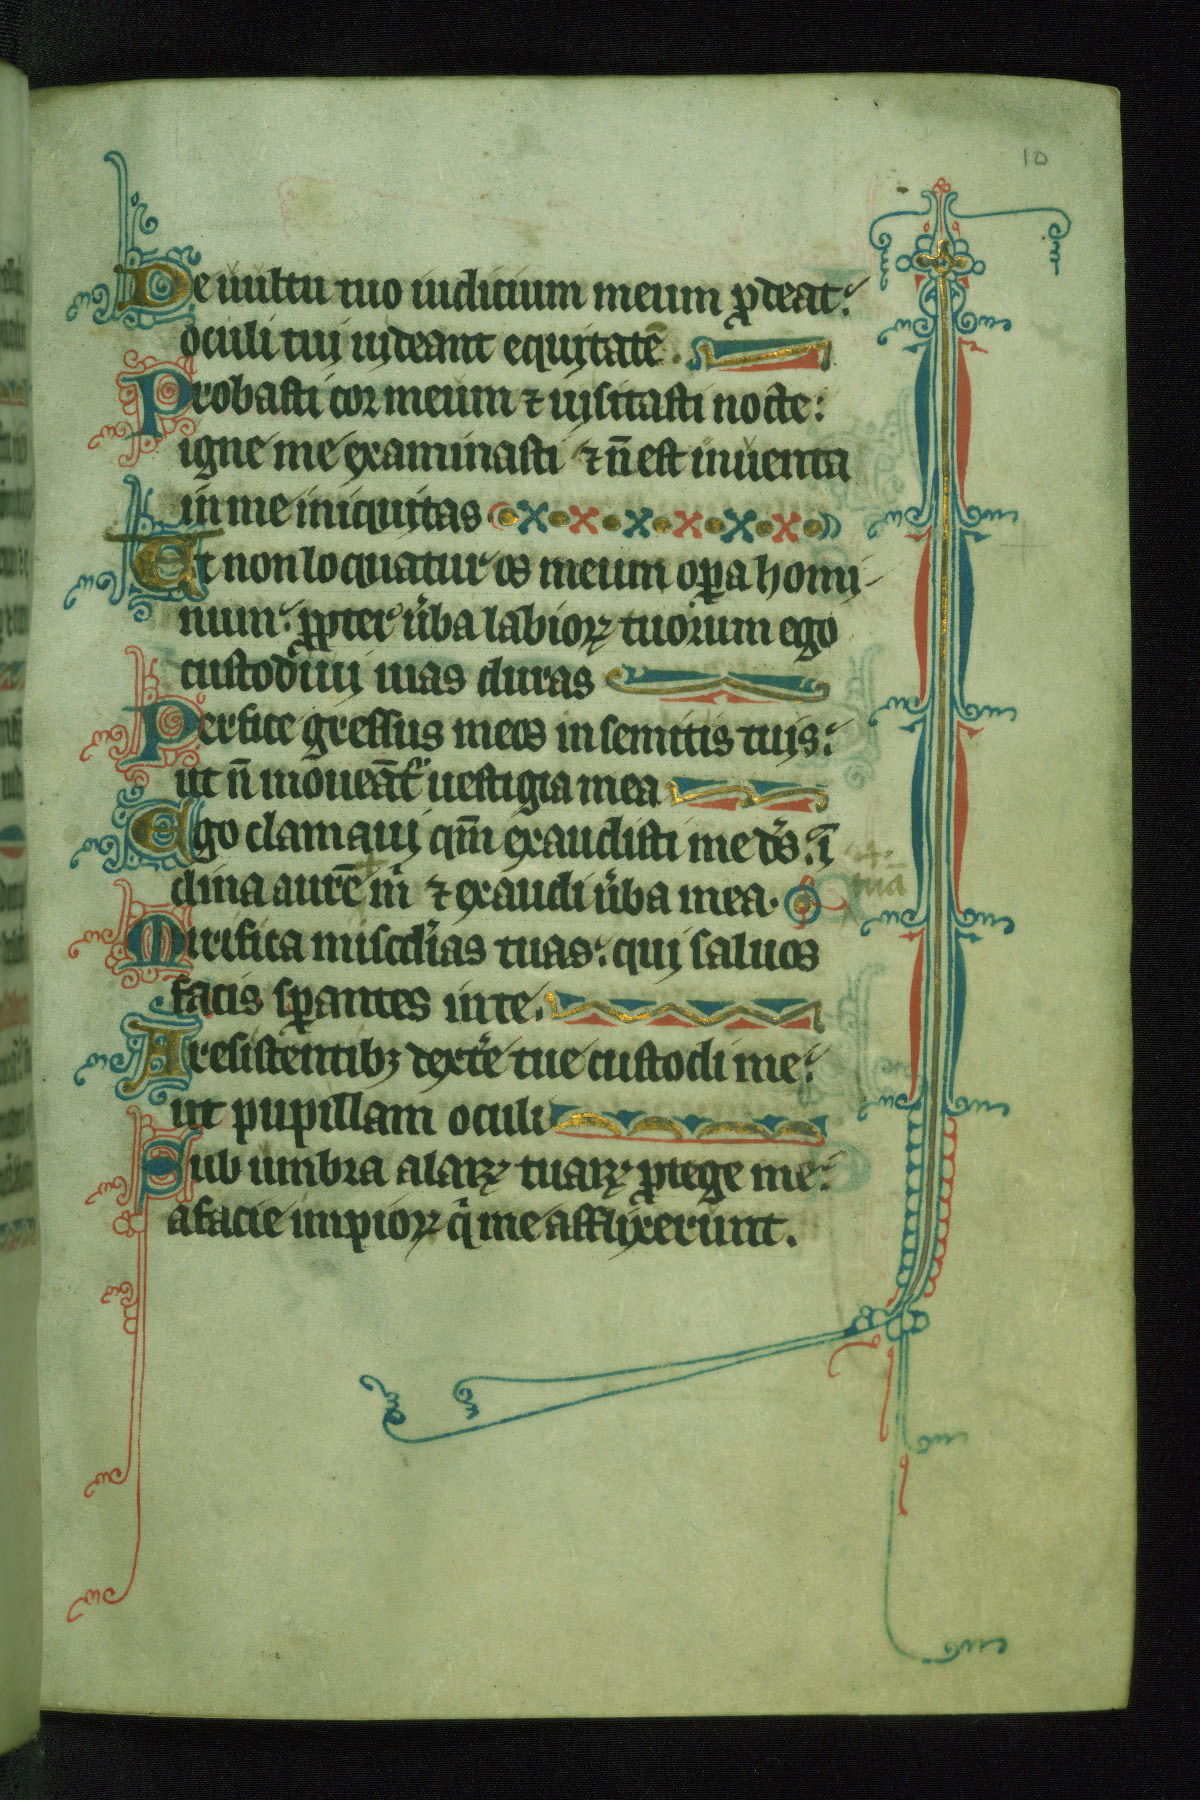 10
De uultu tuo iudicium meum ꝓdeat:
oculi tui uideant equitatē.
Probasti cor meum ⁊ uisitasti nocte:
igne me examinasti ⁊ n̄ est inuenta
in me iniquitas
Et non loquatur os meum oꝑa homi-
num: ꝓpter ũba labioꝝ tuorum ego
custodiui uias duras
Perfice gressus meos in semitis tuis:
ut n̄ moueāt᷑ uestigia mea
Ego clamaui qm̄ exaudisti me ds̄: ī
clina aurē m̄ ⁊ exaudi ũba mea.
tuā
Mirifica misc̄dias tuas: qui saluos
facis sꝑantes in te.
A resistentibꝫ dext̄e tue custodi me:
ut pupillam oculi
Sub umbra alaꝝ tuaꝝ ꝓtege me:
a facie impioꝝ q̄ me afflixerunt.